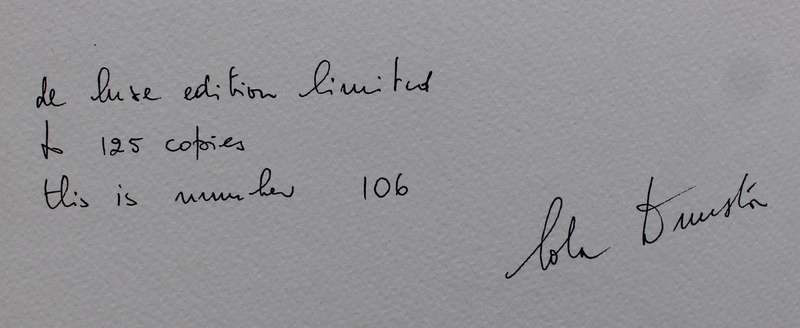 de luxe edition limited
to 125 copies
this is number 106
Lola